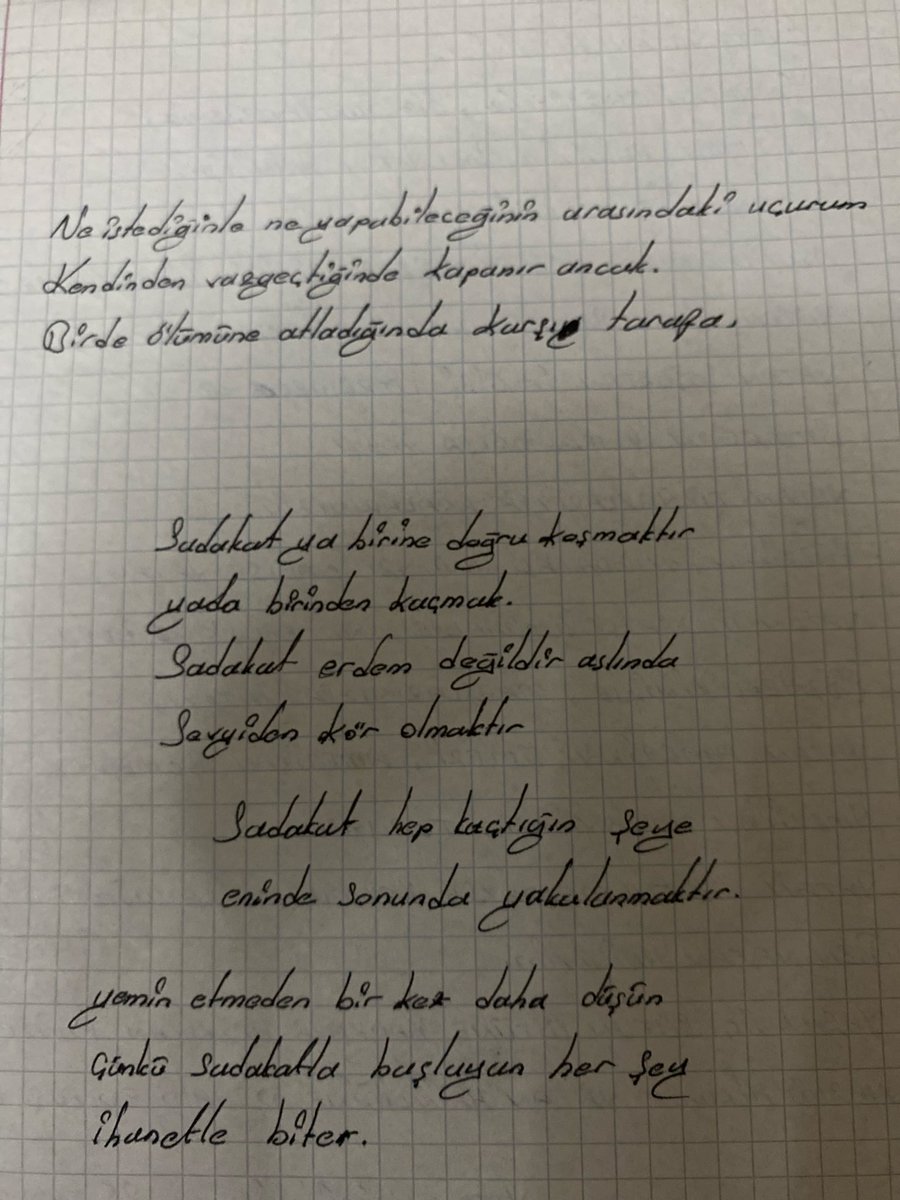 Ne istediğinle ne yapabileceğinin arasındaki uçurum
Kendinden vazgeçtiğinde kapanır ancak.
Birde ölümüne atladığında karşı tarafa.
Sadakat ya birine doğru koşmaktır
yada birinden kaçmak.
Sadakat erdem değildir aslında
Sevgiden kör olmaktır
Sadakat hep kaçtığın şeye
eninde sonunda yakalanmaktır.
yemin etmeden bir kez daha düşün
Çünkü sadakatla başlayan her şey
ihanetle biter.